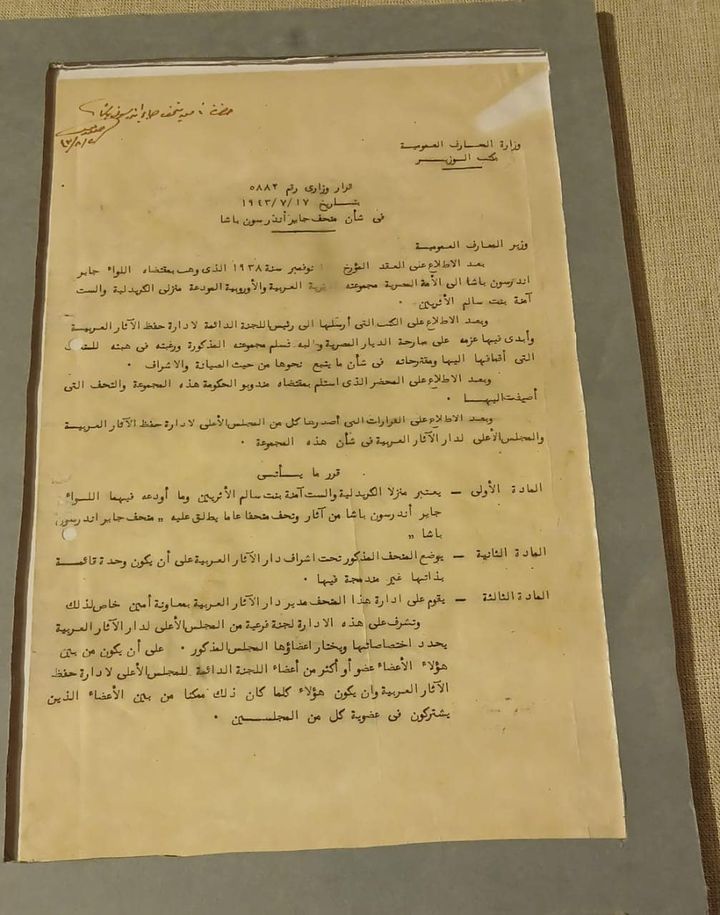 وزارة المعارف العمومية
مكتب الوزير
قرار وزارى رقم ٥٨٨٢
بتاريخ ١٩٤٣/٧/١٧
فى شأن متحف جاير أندرسون باشا
وزير المعارف العمومية
بعد الاطلاع على العقد المؤرخ نوفمبر سنة ١٩٣٨ الذى وهب بمقتضاه اللواء جاير
اندرسون باشا الى الأمة المصرية مجموعته العربية والأوروبية المودعة منزلى الكريدلية والست
آمنة بنت سالم الأثريين .
وبعد الاطلاع على الكتب التى أرسلها الى رئيس اللجنة الدائمة لادارة حفظ الآثار العربية
وأبدى فيها عزمه على مبارحة الديار المصرية تسلم مجموعته المذكورة ورغبته فى هبته
التى أضافها اليها ومقترحاته فى شأن ما يتبع نحوها من حيث الصيانة والاشراف .
وبعد الاطلاع على المحضر الذى استلم بمقتضاه مندوبو الحكومة هذه المجموعة والتحف التى
أضيفت اليها .
وبعد الاطلاع على القرارات التى أصدرها كل من المجلس الأعلى لادارة حفظ الآثار العربية
والمجلس الأعلى لدار الآثار العربية فى شأن هذه المجموعة .
قرر ما يأتى
المادة الأولى – يعتبر منزلا الكريدلية والست آمنة بنت سالم الأثريين وما أودعه فيهما اللواء
جاير أندرسون باشا من آثار وتحف متحفا عاما يطلق عليه „ متحف جاير اندرسون
باشا „
المادة الثانية – يوضع المتحف المذكور تحت اشراف دار الآثار العربية على أن يكون وحدة قائمة
بذاتها غير مندمجة فيها .
المادة الثالثة – يقوم على ادارة هذا المتحف مدير دار الآثار العربية بمعاونة أمين خاص لذلك
وتشرف على هذه الادارة لجنة فرعية من المجلس الأعلى لدار الآثار العربية
يحدد اختصاصاتها ويختار اعضاؤها المجلس المذكور . على أن يكون من بين
هؤلاء الأعضاء عضو أو أكثر من أعضاء اللجنة الدائمة للمجلس الأعلى لادارة حفظ
الآثار العربية وان يكون هؤلاء كلما كان ذلك ممكنا من بين الأعضاء الذين
يشتركون فى عضوية كل من المجلسين .